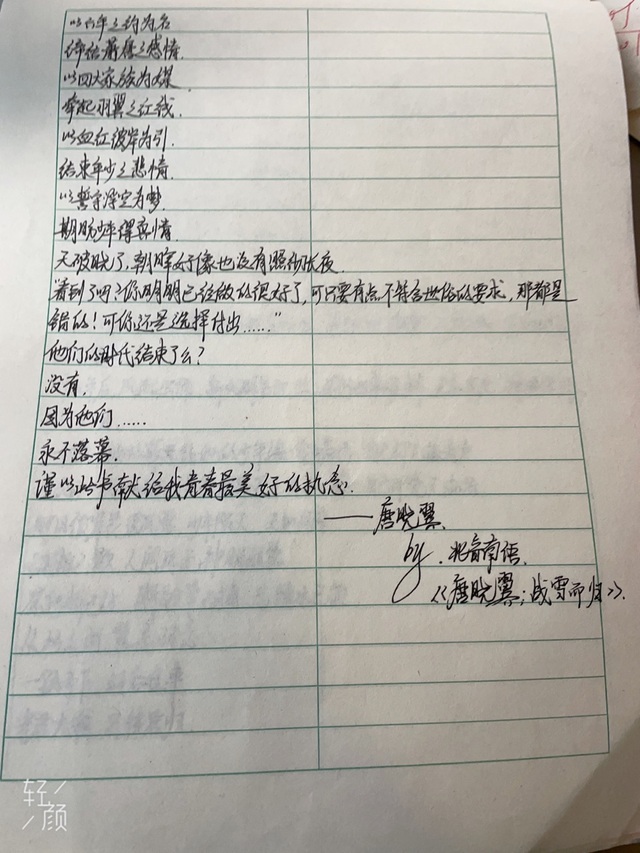 以六年之约为名
缔结萧穆之感情.
以四大家族为媒
牵起羽翼之红线.
以血红彼岸为引.
结束年少之悲情.
以誓言浮空为梦.
期盼年得哀情.
天破晓了,朝晖好像也没有照彻长夜.
看到了吗?你明明已经做的很好了,可只要有点不符合世俗的要求,那都是
错的!可你还是选择付出……"
他们的时代结束了么?
没有.
因为他们……
永不落幕.
谨以此书献给我青春最美好的执念.
——唐晓翼.
by.北音南语.
《唐晓翼:战雪而归》.
轻颜